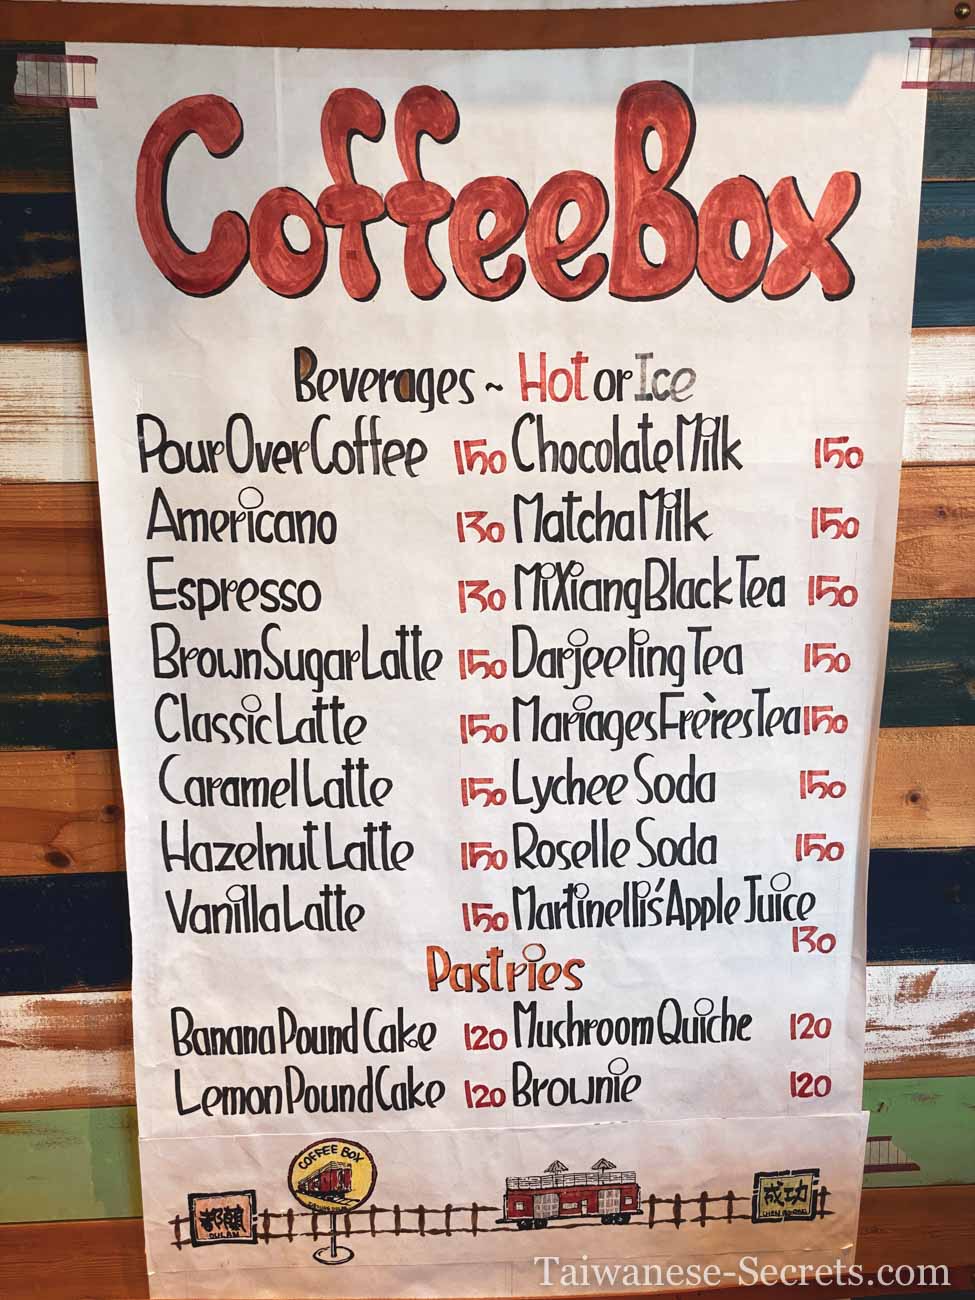 CoffeeBox
Beverages ~ Hot or Ice
Pour Over Coffee 150 Chocolate Milk 150
Americano 130 Matcha Milk 150
Espresso 130 MiXiang Black Tea 150
Brown Sugar Latte 150 Darjeeling Tea 150
Classic Latte 150 Mariages Frères Tea 150
Caramel Latte 150 Lychee Soda 150
Hazelnut Latte 150 Roselle Soda 150
Vanilla Latte 150 Martinelli's Apple Juice
130
Pastries
Banana Pound Cake 120 Mushroom Quiche 120
Lemon Pound Cake 120 Brownie 120
COFFEE BOX
都蘭
DULAN
成功
Taiwanese-Secrets.com